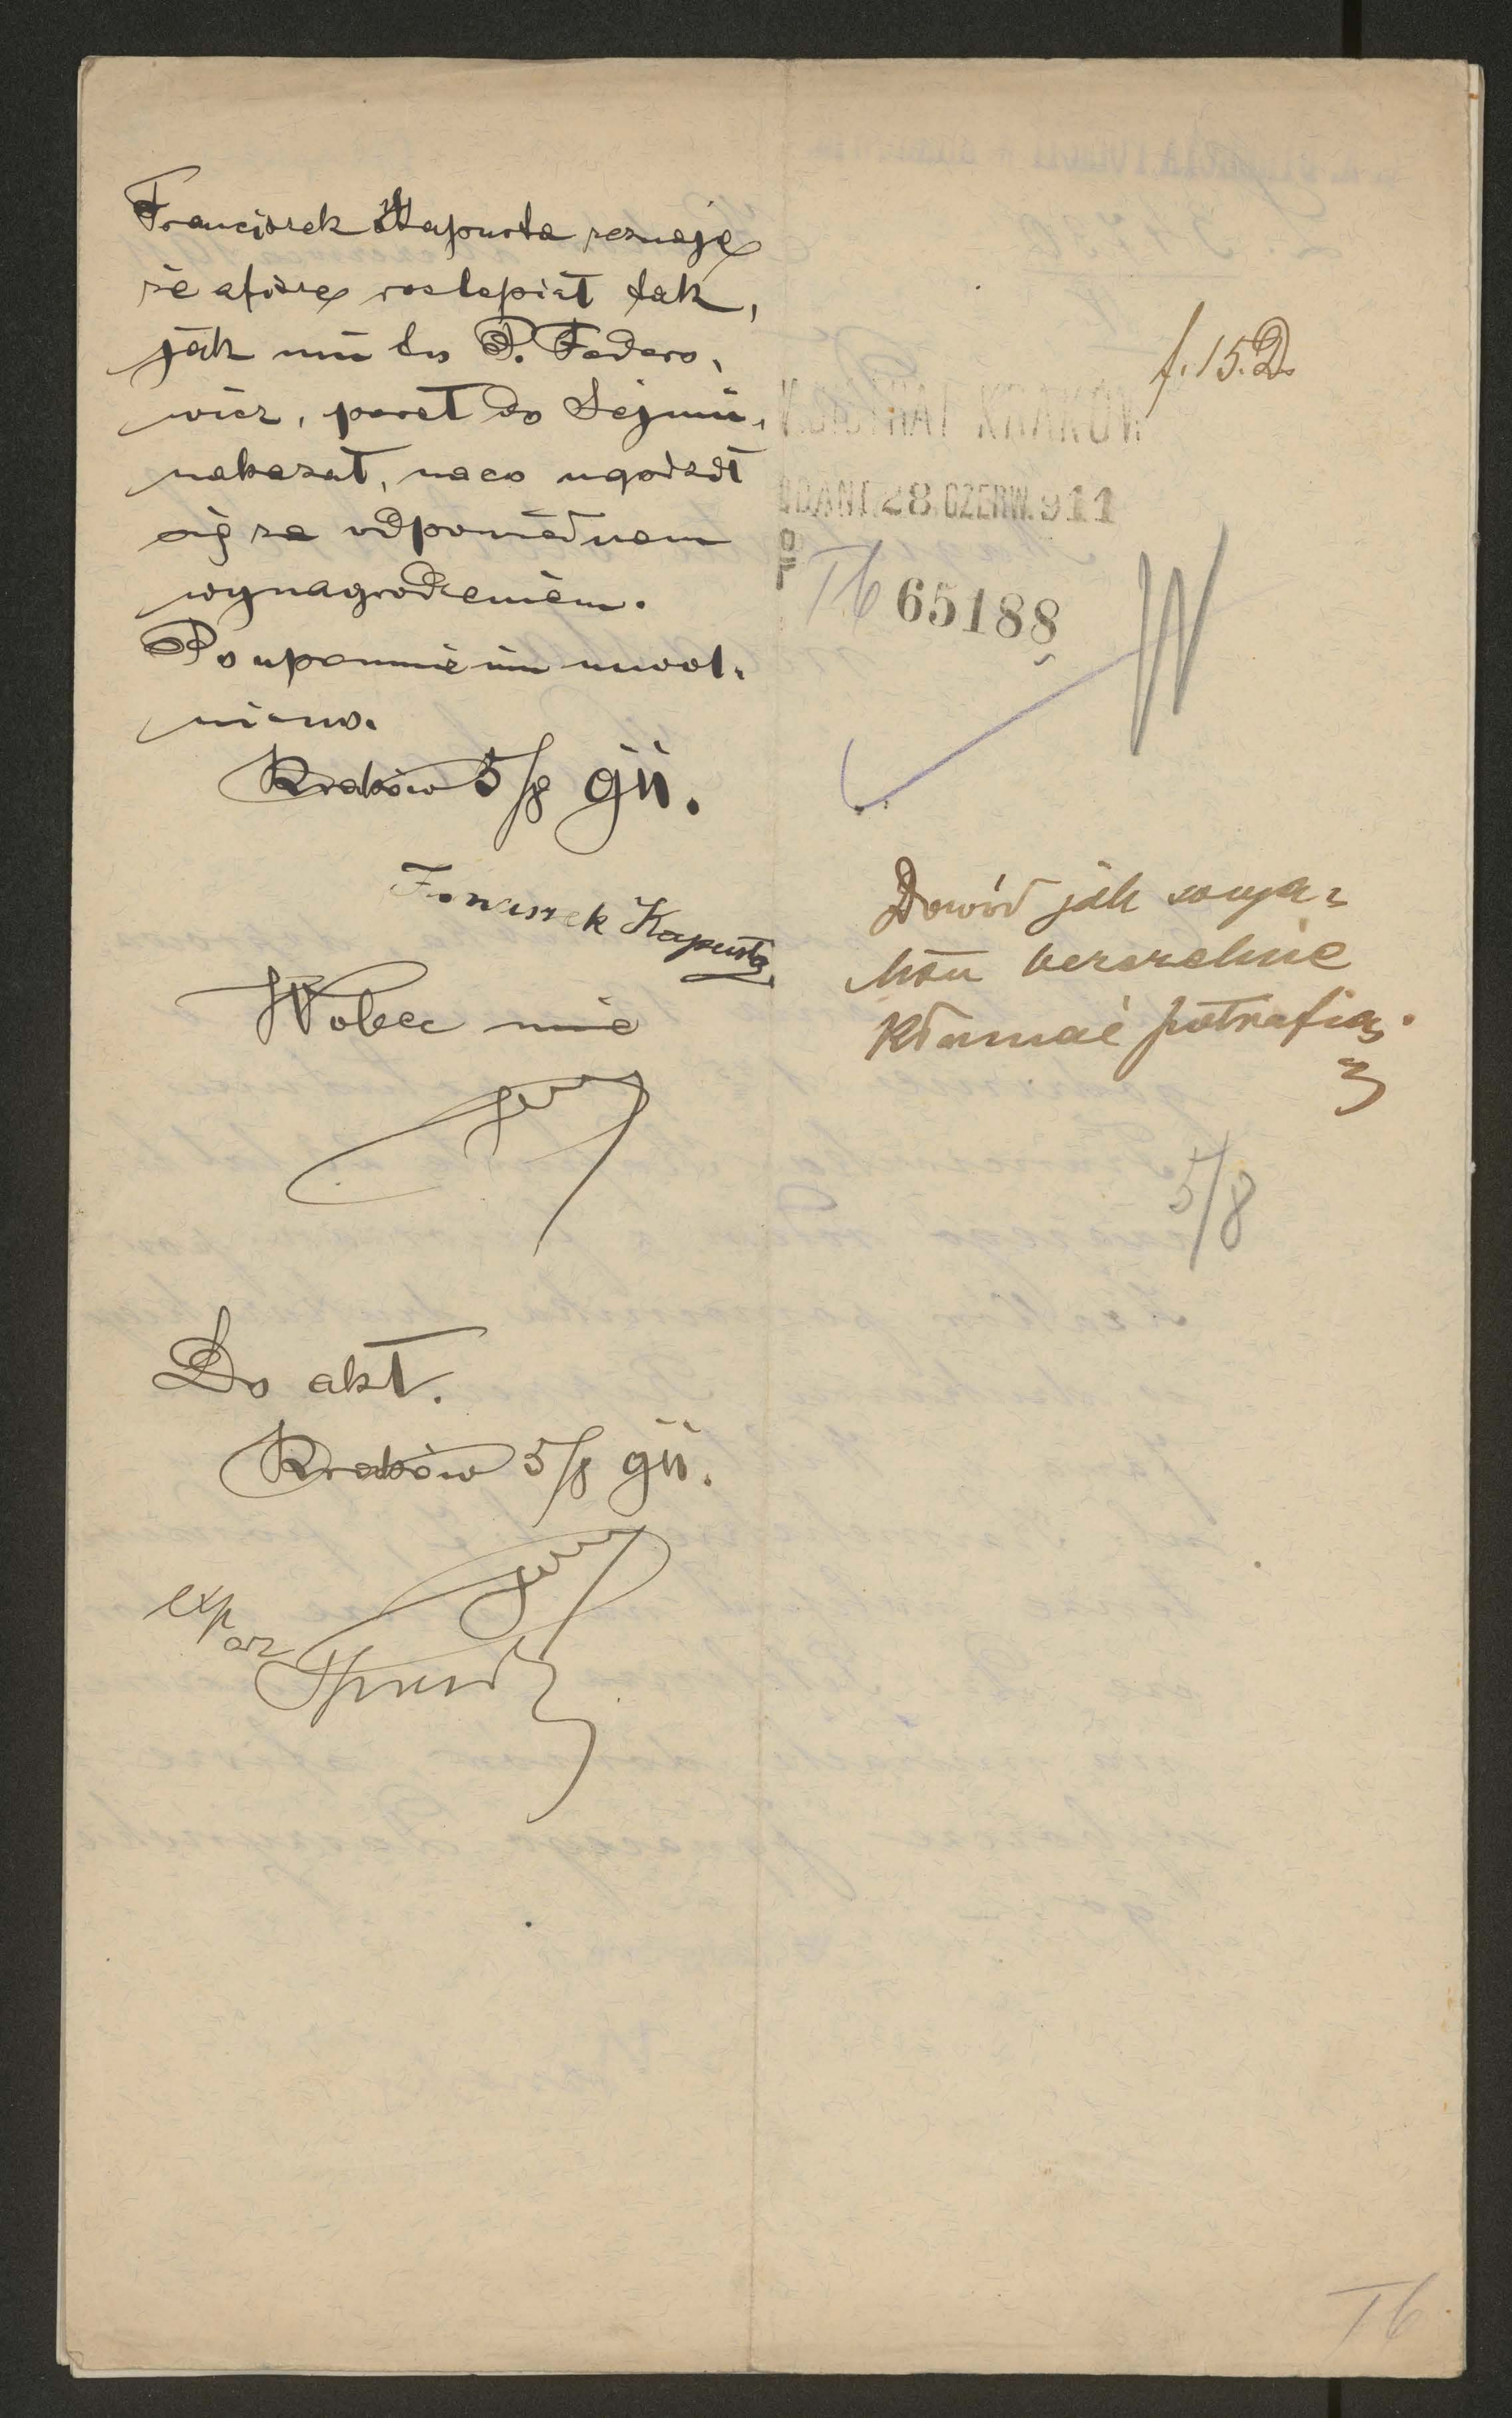 Franciszek Kapusta zeznaje
że afisze rozlepiał tak,
jak mu to P. Federo-
wicz, poseł do Sejmu,
nakazał, na co ugodził
się za odpowiednem
wynagrodzeniem.
Po upomnieniu uwol-
niono.
Kraków 5/8 911.
Franciszek Kapusta
Wobec mnie
Do akt.
Kraków 5/8 911.
exp
f. 15. D.
MAGISTRAT KRAKÓW
PODANE 28. CZERW. 911
I b 65188
Dowód jak
bezczelnie
kłamać potrafią.
5/8
I b